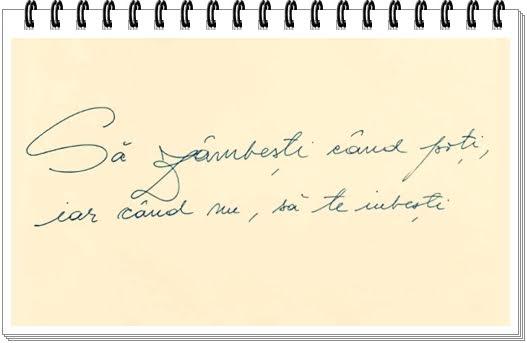 Să zâmbești când poți,
iar când nu, să te iubești